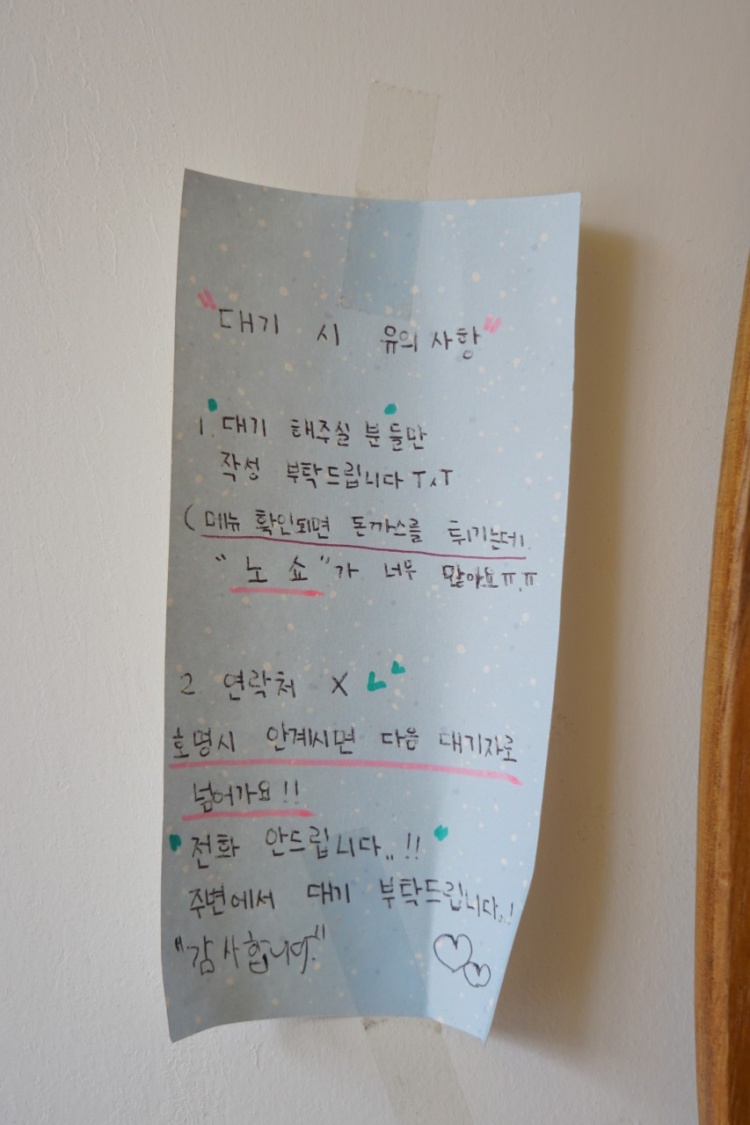 "대기 시 유의사항"
1. 대기 해주실 분들만
작성 부탁드립니다 ㅜ.ㅜ
(메뉴 확인되면 돈까스를 튀기는데
"노쇼"가 너무 많아요ㅠ.ㅠ
2 연락처 X
호명시 안계시면 다음 대기자로
넘어가요!!
전화 안드립니다..!!
주변에서 대기 부탁드립니다..!
"감사합니다."